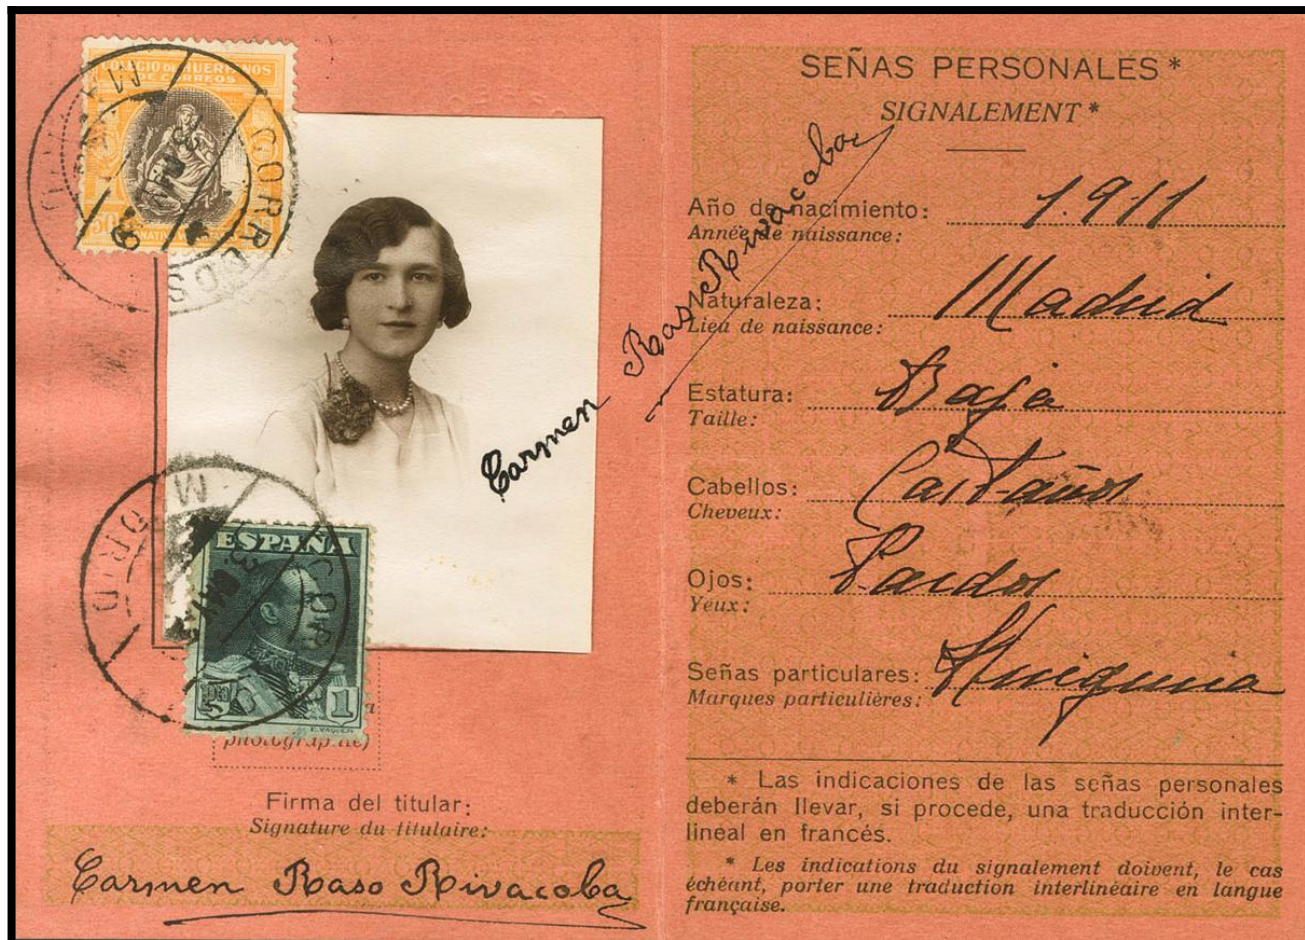 COLEGIO DE HUERFANOS
DE CORREOS
50
CORREOS
MADRID
Carmen Raso Rivacoba
ESPAÑA
1
photographie)
Firma del titular:
Signature du titulaire:
Carmen Raso Rivacoba
SEÑAS PERSONALES *
SIGNALEMENT *
Año de nacimiento: 1.911
Année de naissance:
Naturaleza: Madrid
Lieu de naissance:
Estatura: Baja
Taille:
Cabellos: Castaños
Cheveux:
Ojos: Pardos
Yeux:
Señas particulares: Ninguna
Marques particulières:
* Las indicaciones de las señas personales
deberán llevar, si procede, una traducción inter-
lineal en francés.
* Les indications du signalement doivent, le cas
échéant, porter une traduction interlinéaire en langue
française.